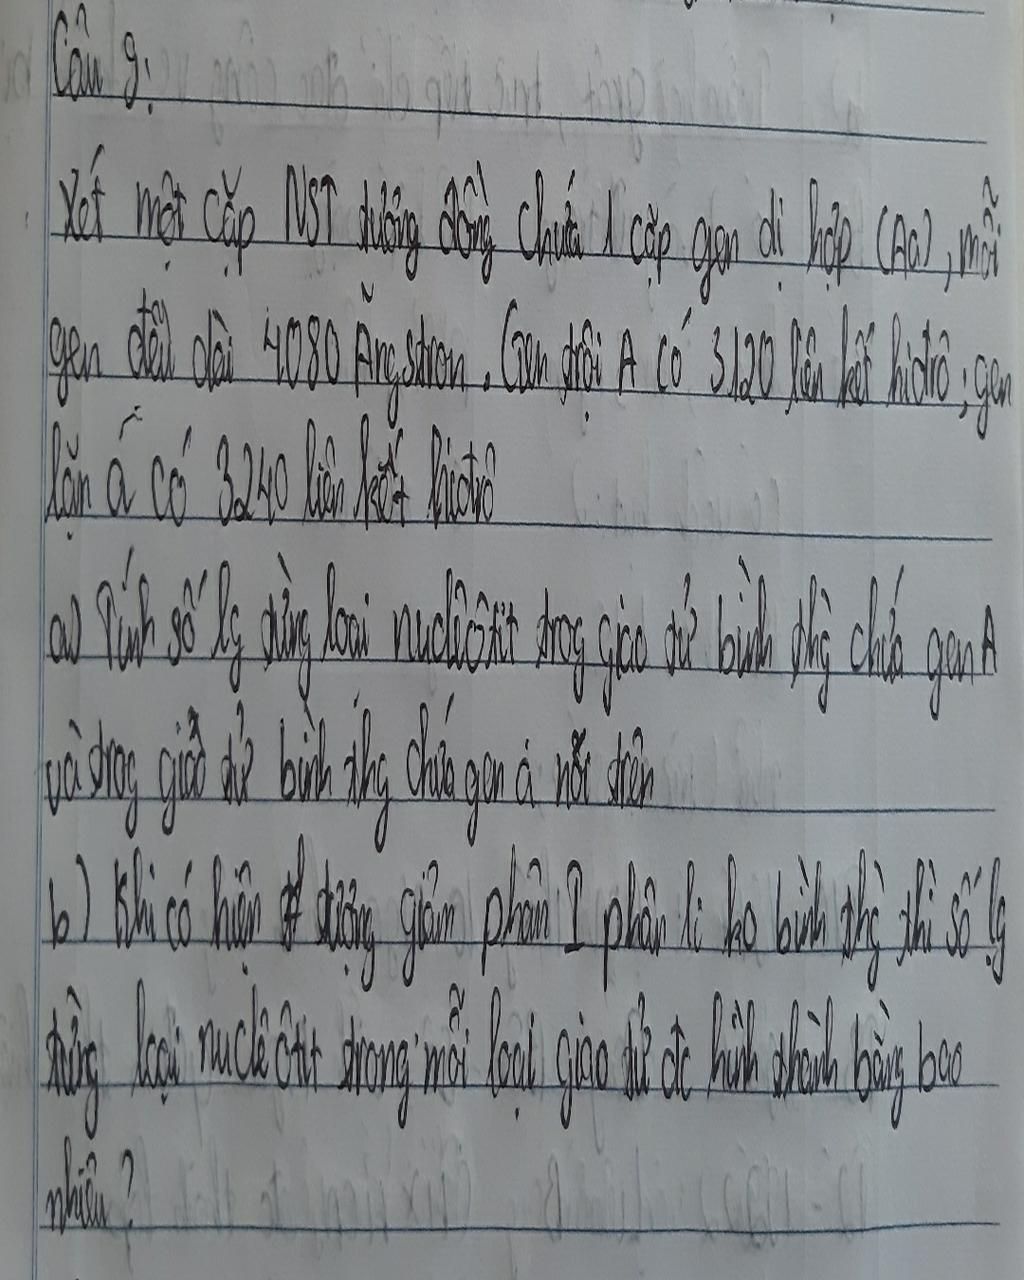 Câu 9:
Xét một cặp NST tương đồng chứa 1 cặp gen dị hợp (Aa), mỗi
gen đều dài 4080 Ăngstron. Gen trội A có 3120 liên kết hiđrô; gen
lặn a có 3240 liên kết hiđrô
a) Tính số lg từng loại nuclêôtit trog giao tử bình thg chứa gen A
và trog giao tử bình thg chứa gen a nói trên
b) Khi có hiện tượng giảm phân I phân li ko bình thg thì số lg
từng loại nuclêôtit trong mỗi loại giao tử đc hình thành bằng bao
nhiêu?